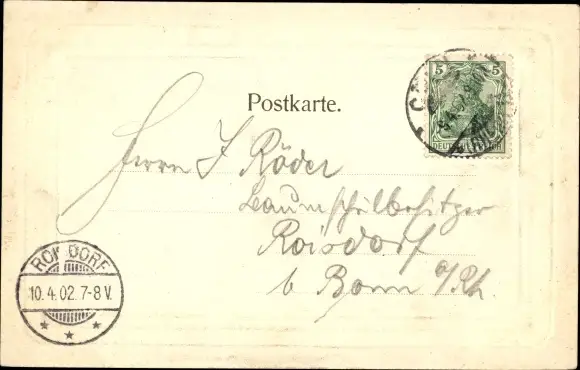 5 5
DEUTSCHES REICH
Postkarte.
Herrn J. Röder
Baumschulbesitzer
Roisdorf
b Bonn a/Rh.
ROISDORF
10.4.02.7-8V.